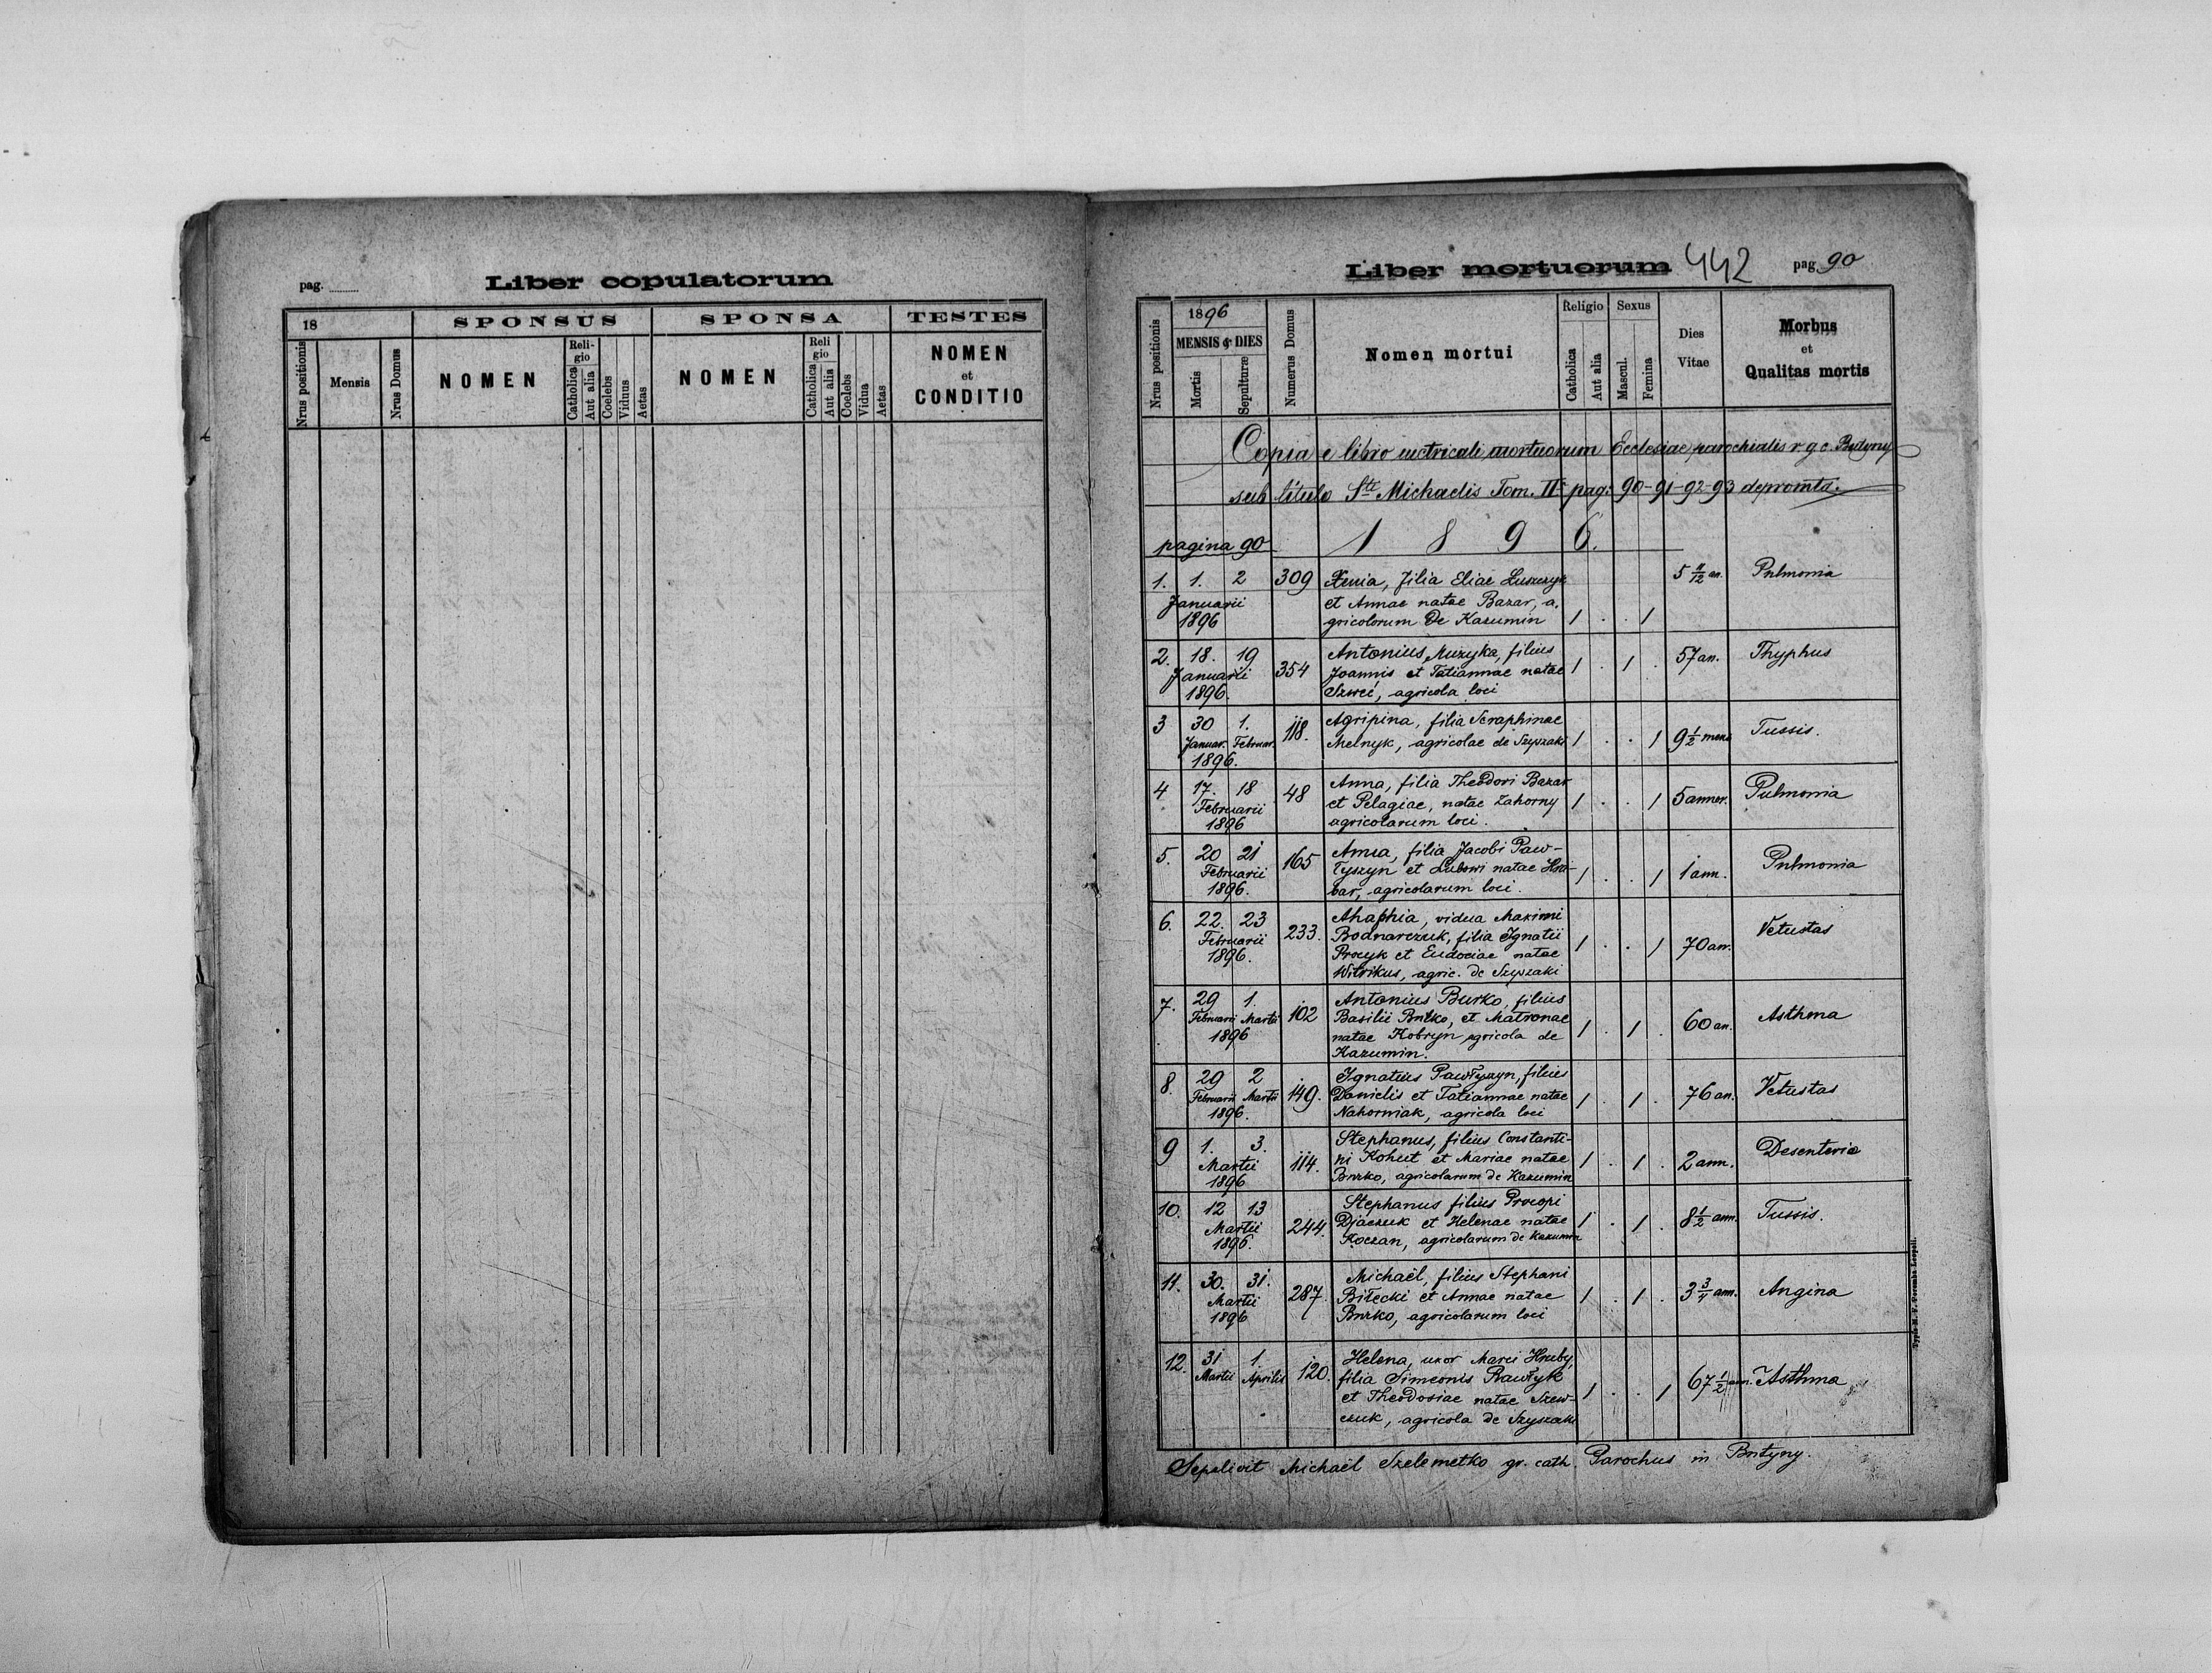 pag.
Liber copulatorum
18
SPONSUS
SPONSA
TESTES
Nrus positionis
Mensis
Nrus Domus
NOMEN
Religio
Catholica
Aut alia
Coelebs
Viduus
Aetas
NOMEN
Religio
Catholica
Aut alia
Coelebs
Vidua
Aetas
NOMEN
et
CONDITIO
Liber mortuorum 442 pag. 90
Nrus positionis
1896
MENSIS & DIES
Mortis
Sepulturæ
Numerus Domus
Nomen mortui
Religio
Catholica
Aut alia
Sexus
Mascul.
Femina
Dies
Vitae
Morbus
et
Qualitas mortis
Copia e libro metricali mortuorum Ecclesiae parochialis r. g. c. Butyny
sub titulo Sti Michaelis Tom. II pag: 90-91-92-93 depromta.
pagina 90 1 8 9 6.
1. 1. 2 309 Xenia, filia Eliae Luszczyk 5 11/12 an. Pulmonia
Januarii et Annae natae Bazar, a.
1896 gricolorum de Kazumin 1 . . 1
2. 18. 19 354 Antonius Muzyka, filius 57 an. Thyphus
Januarii Joannis et Tatiannae natae 1 . 1 .
1896. Szweć, agricola loci
3 30 1. 118. Agripina, filia Seraphinae Tussis.
Januar. Februar. Melnyk, agricolae de Szyszaki 1 . . 1 9 1/2 mens
1896.
4 17. 18 48 Anna, filia Theodori Bazar Pulmonia
Februarii et Pelagiae, natae Zahorny 1 . . 1 5 annor.
1896 agricolarum loci.
5. 20 21 165 Anna, filia Jacobi Paw-
Februarii tyszyn et Lubowi natae Hra- 1 . . 1 1 ann. Pulmonia
1896. bar, agricolarum loci.
6. 22. 23 233. Ahaphia, vidua Maximi Vetustas
Februarii Bodnarczuk, filia Ignatii 1 . . 1 70 an.
1896. Procyk et Eudociae natae
Witrikus, agric. de Szyszaki
7. 29 1. 102 Antonius Burko, filius
Februarii Martii Basilii Burko, et Matronae 1 . 1 . 60 an. Asthma
1896 natae Kobryn agricola de
Kazumin.
8. 29 2 149. Ignatius Pawłyszyn, filius
Februarii Martii Danielis et Tatiannae natae 1 . 1 . 76 an. Vetustas
1896. Nahorniak, agricola loci
9 1. 3. 114. Stephanus, filius Constanti-
Martii ni Kohut et Mariae natae 1 . 1 . 2 ann. Desenteria
1896 Burko, agricolarum de Kazumin
10. 12 13 244. Stephanus filius Procopi
Martii Djaczuk et Helenae natae 1 . 1 . 8 1/2 ann. Tussis.
1896. Koczan, agricolarum de Kazumin
11. 30. 31. 287. Michaël, filius Stephani
Martii Biłecki et Annae natae 1 . 1 . 3 3/4 ann. Angina
1896 Burko, agricolarum loci
12. 31 1. 120. Helena, uxor Marci Hruby,
Martii Aprilis filia Simeonis Pawłyk 1 . . 1 67 1/2 ann. Asthma
et Theodosiae natae Szew-
czuk, agricola de Szyszaki
Sepelivit Michaël Szelemetko gr. cath. Parochus in Butyny.